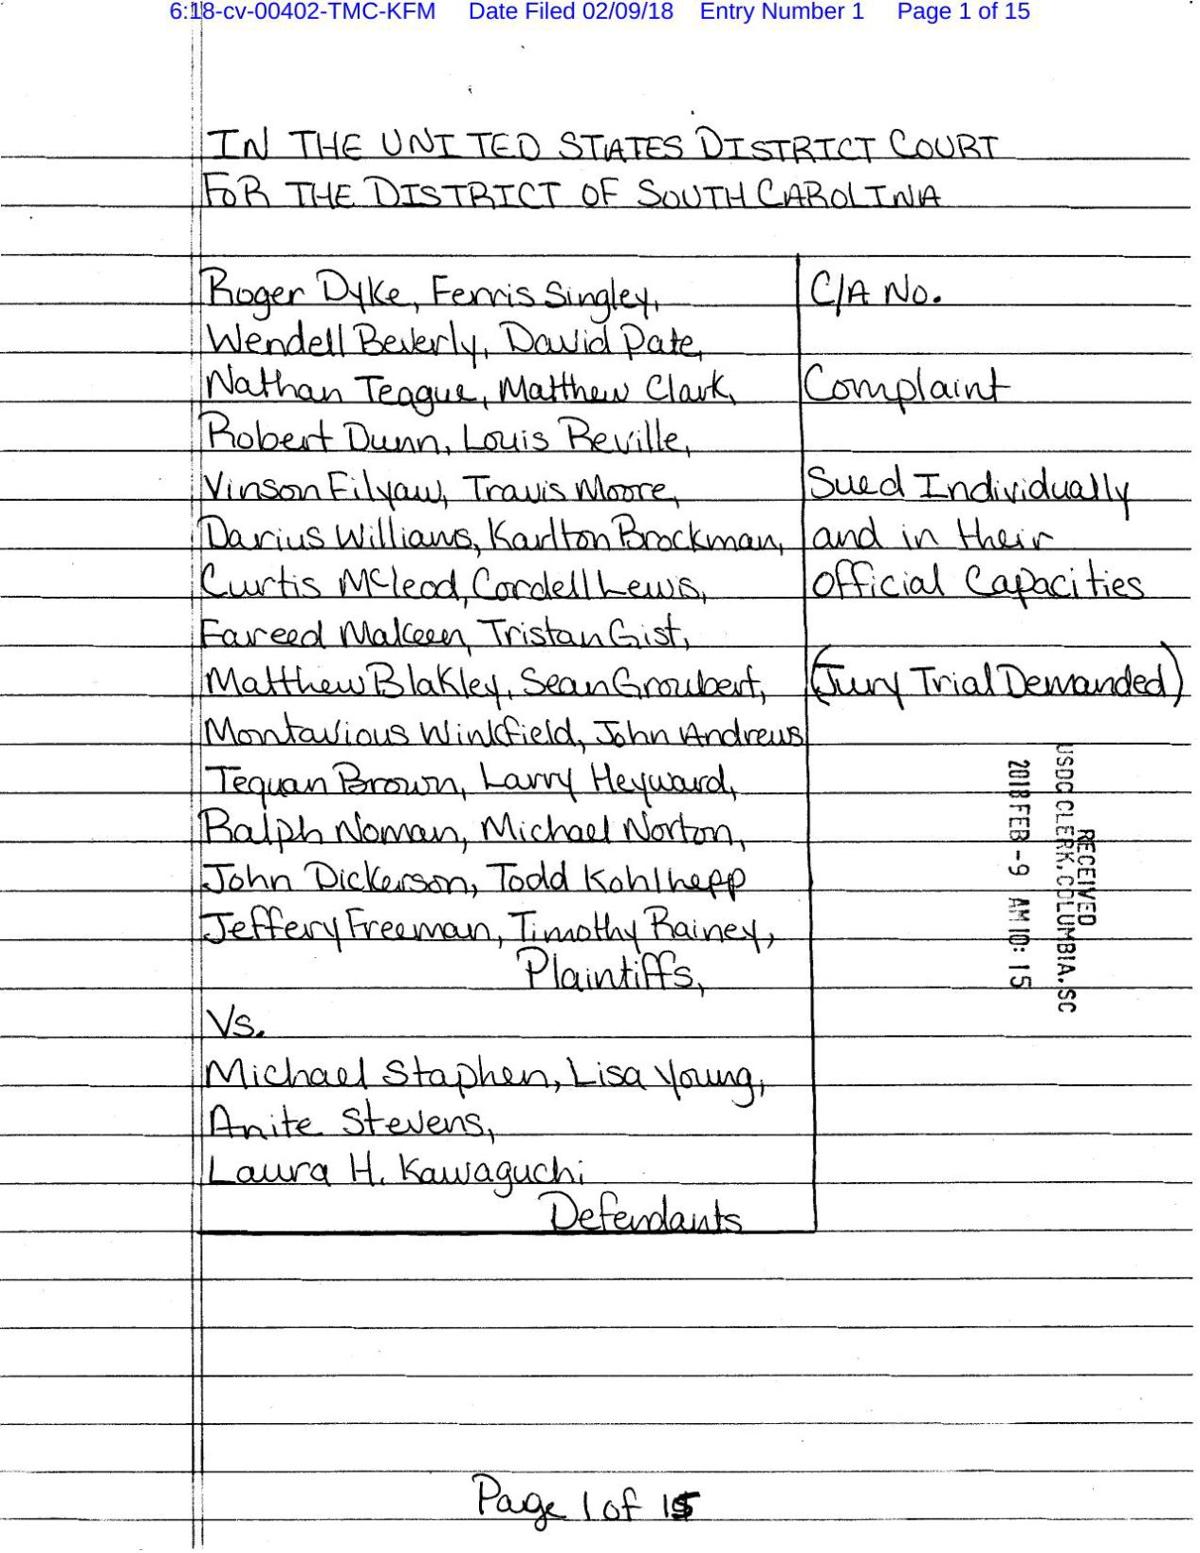 6:18-cv-00402-TMC-KFM Date Filed 02/09/18 Entry Number 1 Page 1 of 15
IN THE UNITED STATES DISTRICT COURT
FOR THE DISTRICT OF SOUTH CAROLINA
Roger Dyke, Ferris Singley,
Wendell Beverly, David Pate,
Nathan Teague, Matthew Clark,
Robert Dunn, Louis Reville,
Vinson Filyaw, Travis Moore,
Darius Williams, Karlton Brockman,
Curtis McLeod, Cordell Lewis,
Fareed Makeen, Tristan Gist,
Matthew Blakley, Sean Groubert,
Montavious Winkfield, John Andrews
Tequan Brown, Larry Heyward,
Ralph Noman, Michael Norton,
John Dickerson, Todd Kohlhepp
Jeffery Freeman, Timothy Rainey,
Plaintiffs,
Vs.
Michael Staphen, Lisa Young,
Anite Stevens,
Laura H. Kawaguchi
Defendants
C/A No.
Complaint
Sued Individually
and in their
official Capacities
(Jury Trial Demanded)
RECEIVED
USDC CLERK, COLUMBIA, SC
2018 FEB -9 AM 10: 15
Page 1 of 15